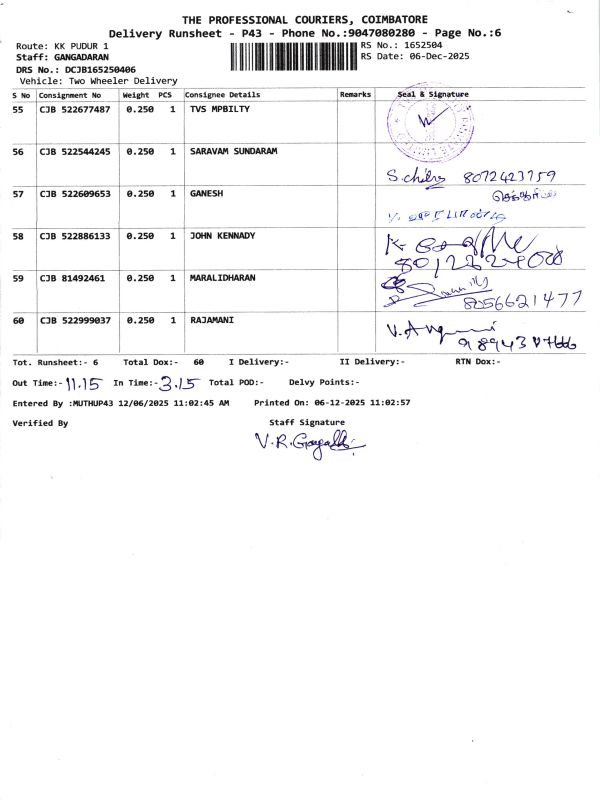 THE PROFESSIONAL COURIERS, COIMBATORE
Delivery Runsheet - P43 - Phone No.:9047080280 - Page No.:6
Route: KK PUDUR 1
RS No.: 1652504
Staff: GANGADARAN
RS Date: 06-Dec-2025
DRS No.: DCJB165250406
Vehicle: Two Wheeler Delivery
S No Consignment No Weight PCS Consignee Details Remarks Seal & Signature
55 CJB 522677487 0.250 1 TVS MPBILTY
56 CJB 522544245 0.250 1 SARAVAM SUNDARAM
8072423759
57 CJB 522609653 0.250 1 GANESH
58 CJB 522886133 0.250 1 JOHN KENNADY
59 CJB 81492461 0.250 1 MARALIDHARAN
8056621477
60 CJB 522999037 0.250 1 RAJAMANI
Tot. Runsheet:- 6 Total Dox:- 60 I Delivery:- II Delivery:- RTN Dox:-
Out Time:- 11.15 In Time:- 3.15 Total POD:- Delvy Points:-
Entered By :MUTHUP43 12/06/2025 11:02:45 AM Printed On: 06-12-2025 11:02:57
Verified By Staff Signature
V.R.